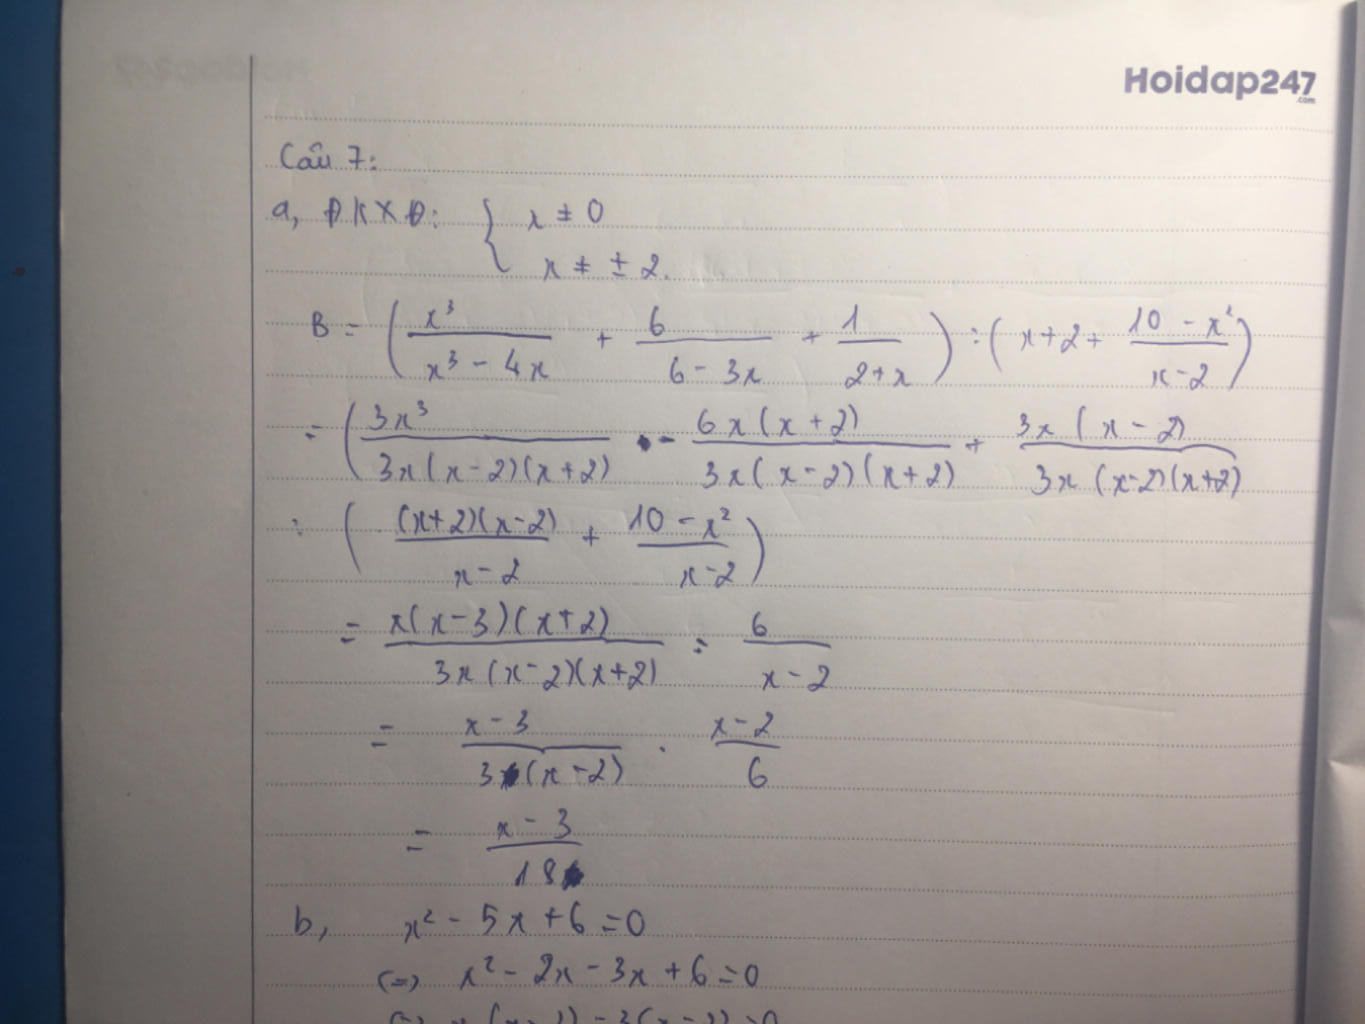 Hoidap247
.com
Câu 7:
a, ĐKXĐ: { x ≠ 0
x ≠ ± 2.
B = ( x³/(x³ - 4x) + 6/(6 - 3x) + 1/(2+x) ) : ( x+2+ (10 - x²)/(x-2) )
= ( 3x³/(3x(x-2)(x+2)) - 6x(x+2)/(3x(x-2)(x+2)) + 3x(x-2)/(3x(x-2)(x+2))
: ( (x+2)(x-2)/(x-2) + (10 - x²)/(x-2) )
= x(x-3)(x+2)/(3x(x-2)(x+2)) : 6/(x-2)
= (x-3)/(3(x-2)) . (x-2)/6
= (x-3)/18
b, x² - 5x + 6 = 0
(=) x² - 2x - 3x + 6 = 0